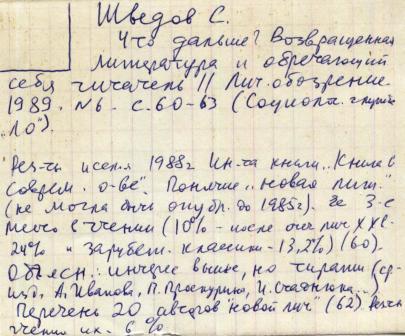 Шведов С.
Что дальше? Возвращенная
литература и обречающий
себя читатель // Лит. обозрение
1989. №6. с. 60-63 (Социолог.
"ЛО").
Рез-ты исслед. 1988г Ин-та книги "Книга в
соврем. о-ве". Понятие "новая лит."
(не могла быть опубл. до 1985г). Ее 3-е
место в чтении (10% - после отеч лит XX в -
24% и зарубеж. классики - 13,2%) (60).
Объясн.: интерес выше, но тиражи (ср.
изд. А. Иванова, П. Проскурина, И. Стаднюка...)
Перечень 20 авторов "новой лит" (62)
чтения их - 6%